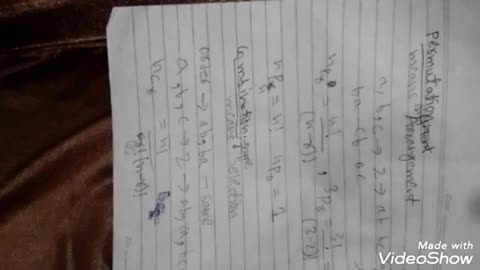 Permutation
means arrangement
a, b, c → 2 → ab bc
ba cb ac
nPr = n! / (n-r)! , 3P2 = 3! / (3-2)! =
nPn = n! nP0 = 1
Combination
means Selection
order → ab, ba - same
a, b, c → 2 → ab, bc
nCr = n! / r! (n-r)!
Made with
VideoShow